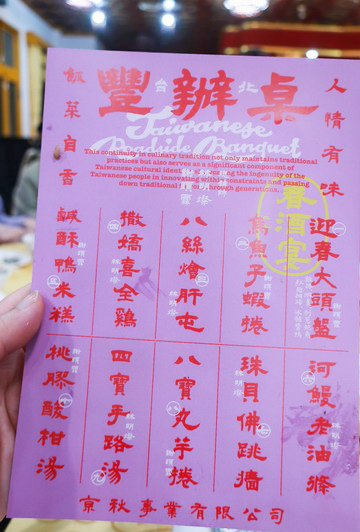 豐辦桌
台北
飯菜自香
人情有味
Taiwanese
Roadside Banquet
This continuity in culinary tradition not only maintains traditional
practices but also serves as a significant component of
Taiwanese cultural
the ingenuity of the
Taiwanese people in innovating within constraints and passing
down traditional
through generations.
春酒宴
一
迎春大頭盤
烏魚子蝦捲
三
八絲燴肝屯
四
撒嬌喜全鷄
五
鹹酥鴨米糕
六
河鰻老油條
七
珠貝佛跳牆
八
八寶丸芋捲
九
四寶手路湯
桃膠酸柑湯
京秋事業有限公司